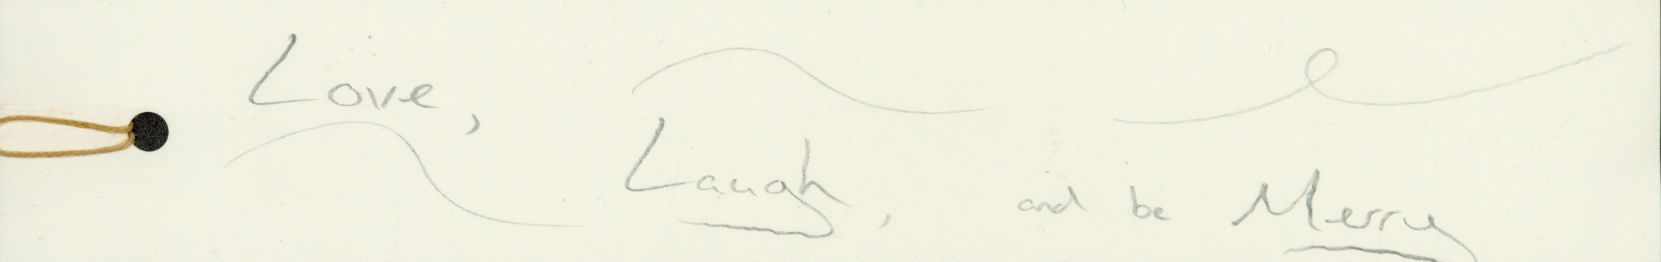 Love,
Laugh, and be Merry